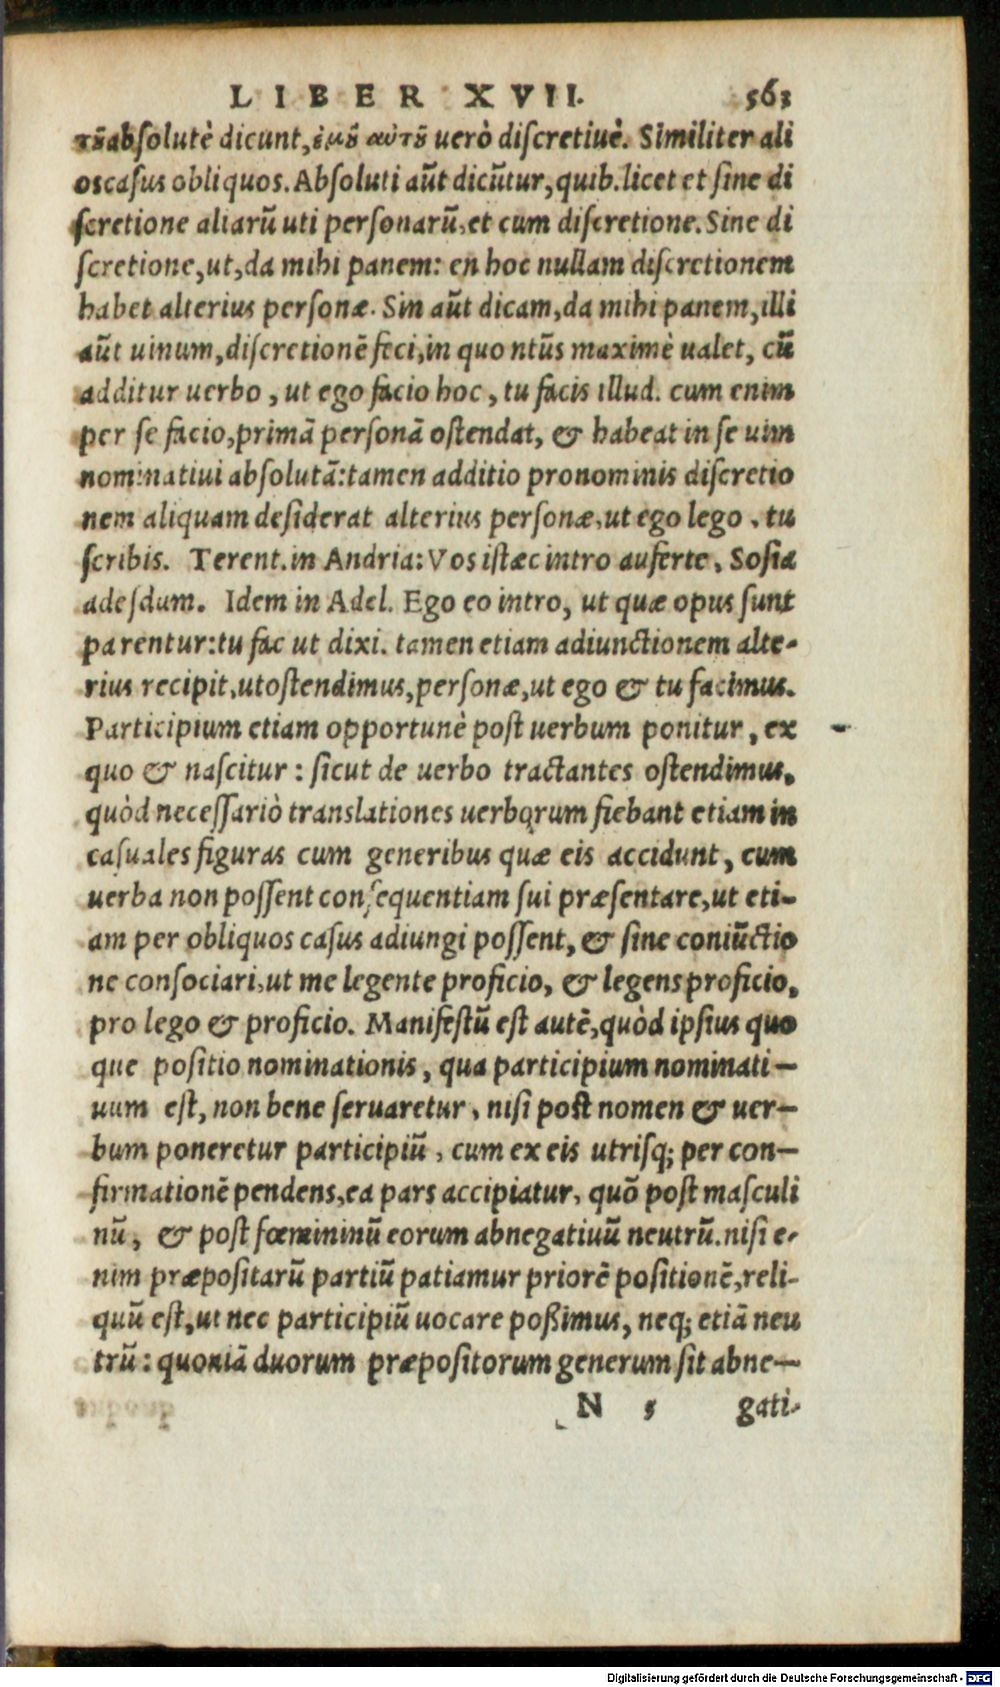 LIBER XVII. 563
τȣ̃ absolutè dicunt, ἐμȣ̃ αὐτȣ̃ uerò discretiuè. Similiter ali
os casus obliquos. Absoluti aũt dicũtur, quib. licet et sine di
scretione aliarũ uti personarũ, et cum discretione. Sine di
scretione, ut, da mihi panem: en hoc nullam discretionem
habet alterius personæ. Sin aũt dicam, da mihi panem, illi
aũt uinum, discretionẽ feci, in quo ntũs maximè ualet, cũ
additur uerbo, ut ego facio hoc, tu facis illud. cum enim
per se facio, primã personã ostendat, & habeat in se uim
nominatiui absolutã: tamen additio pronominis discretio
nem aliquam desiderat alterius personæ, ut ego lego, tu
scribis. Terent. in Andria: Vos istæc intro auferte, Sosia
adesdum. Idem in Adel. Ego eo intro, ut quæ opus sunt
parentur: tu fac ut dixi. tamen etiam adiunctionem alte-
rius recipit, ut ostendimus, personæ, ut ego & tu facimus.
Participium etiam opportunè post uerbum ponitur, ex
quo & nascitur: sicut de uerbo tractantes ostendimus,
quòd necessariò translationes uerborum fiebant etiam in
casuales figuras cum generibus quæ eis accidunt, cum
uerba non possent consequentiam sui præsentare, ut eti-
am per obliquos casus adiungi possent, & sine coniũctio
ne consociari, ut me legente proficio, & legens proficio,
pro lego & proficio. Manifestũ est autẽ, quòd ipsius quo
que positio nominationis, qua participium nominati-
uum est, non bene seruaretur, nisi post nomen & uer-
bum poneretur participiũ, cum ex eis utrisq; per con-
firmationẽ pendens, ea pars accipiatur, quõ post masculi
nũ, & post fœmininũ eorum abnegatiuũ neutrũ. nisi e-
nim præpositarũ partiũ patiamur priorẽ positionẽ, reli-
quũ est, ut nec participiũ uocare poßimus, neq; etiã neu
trũ: quoniã duorum præpositorum generum sit abne-
N 5 gati-
Digitalisierung gefördert durch die Deutsche Forschungsgemeinschaft - DFG